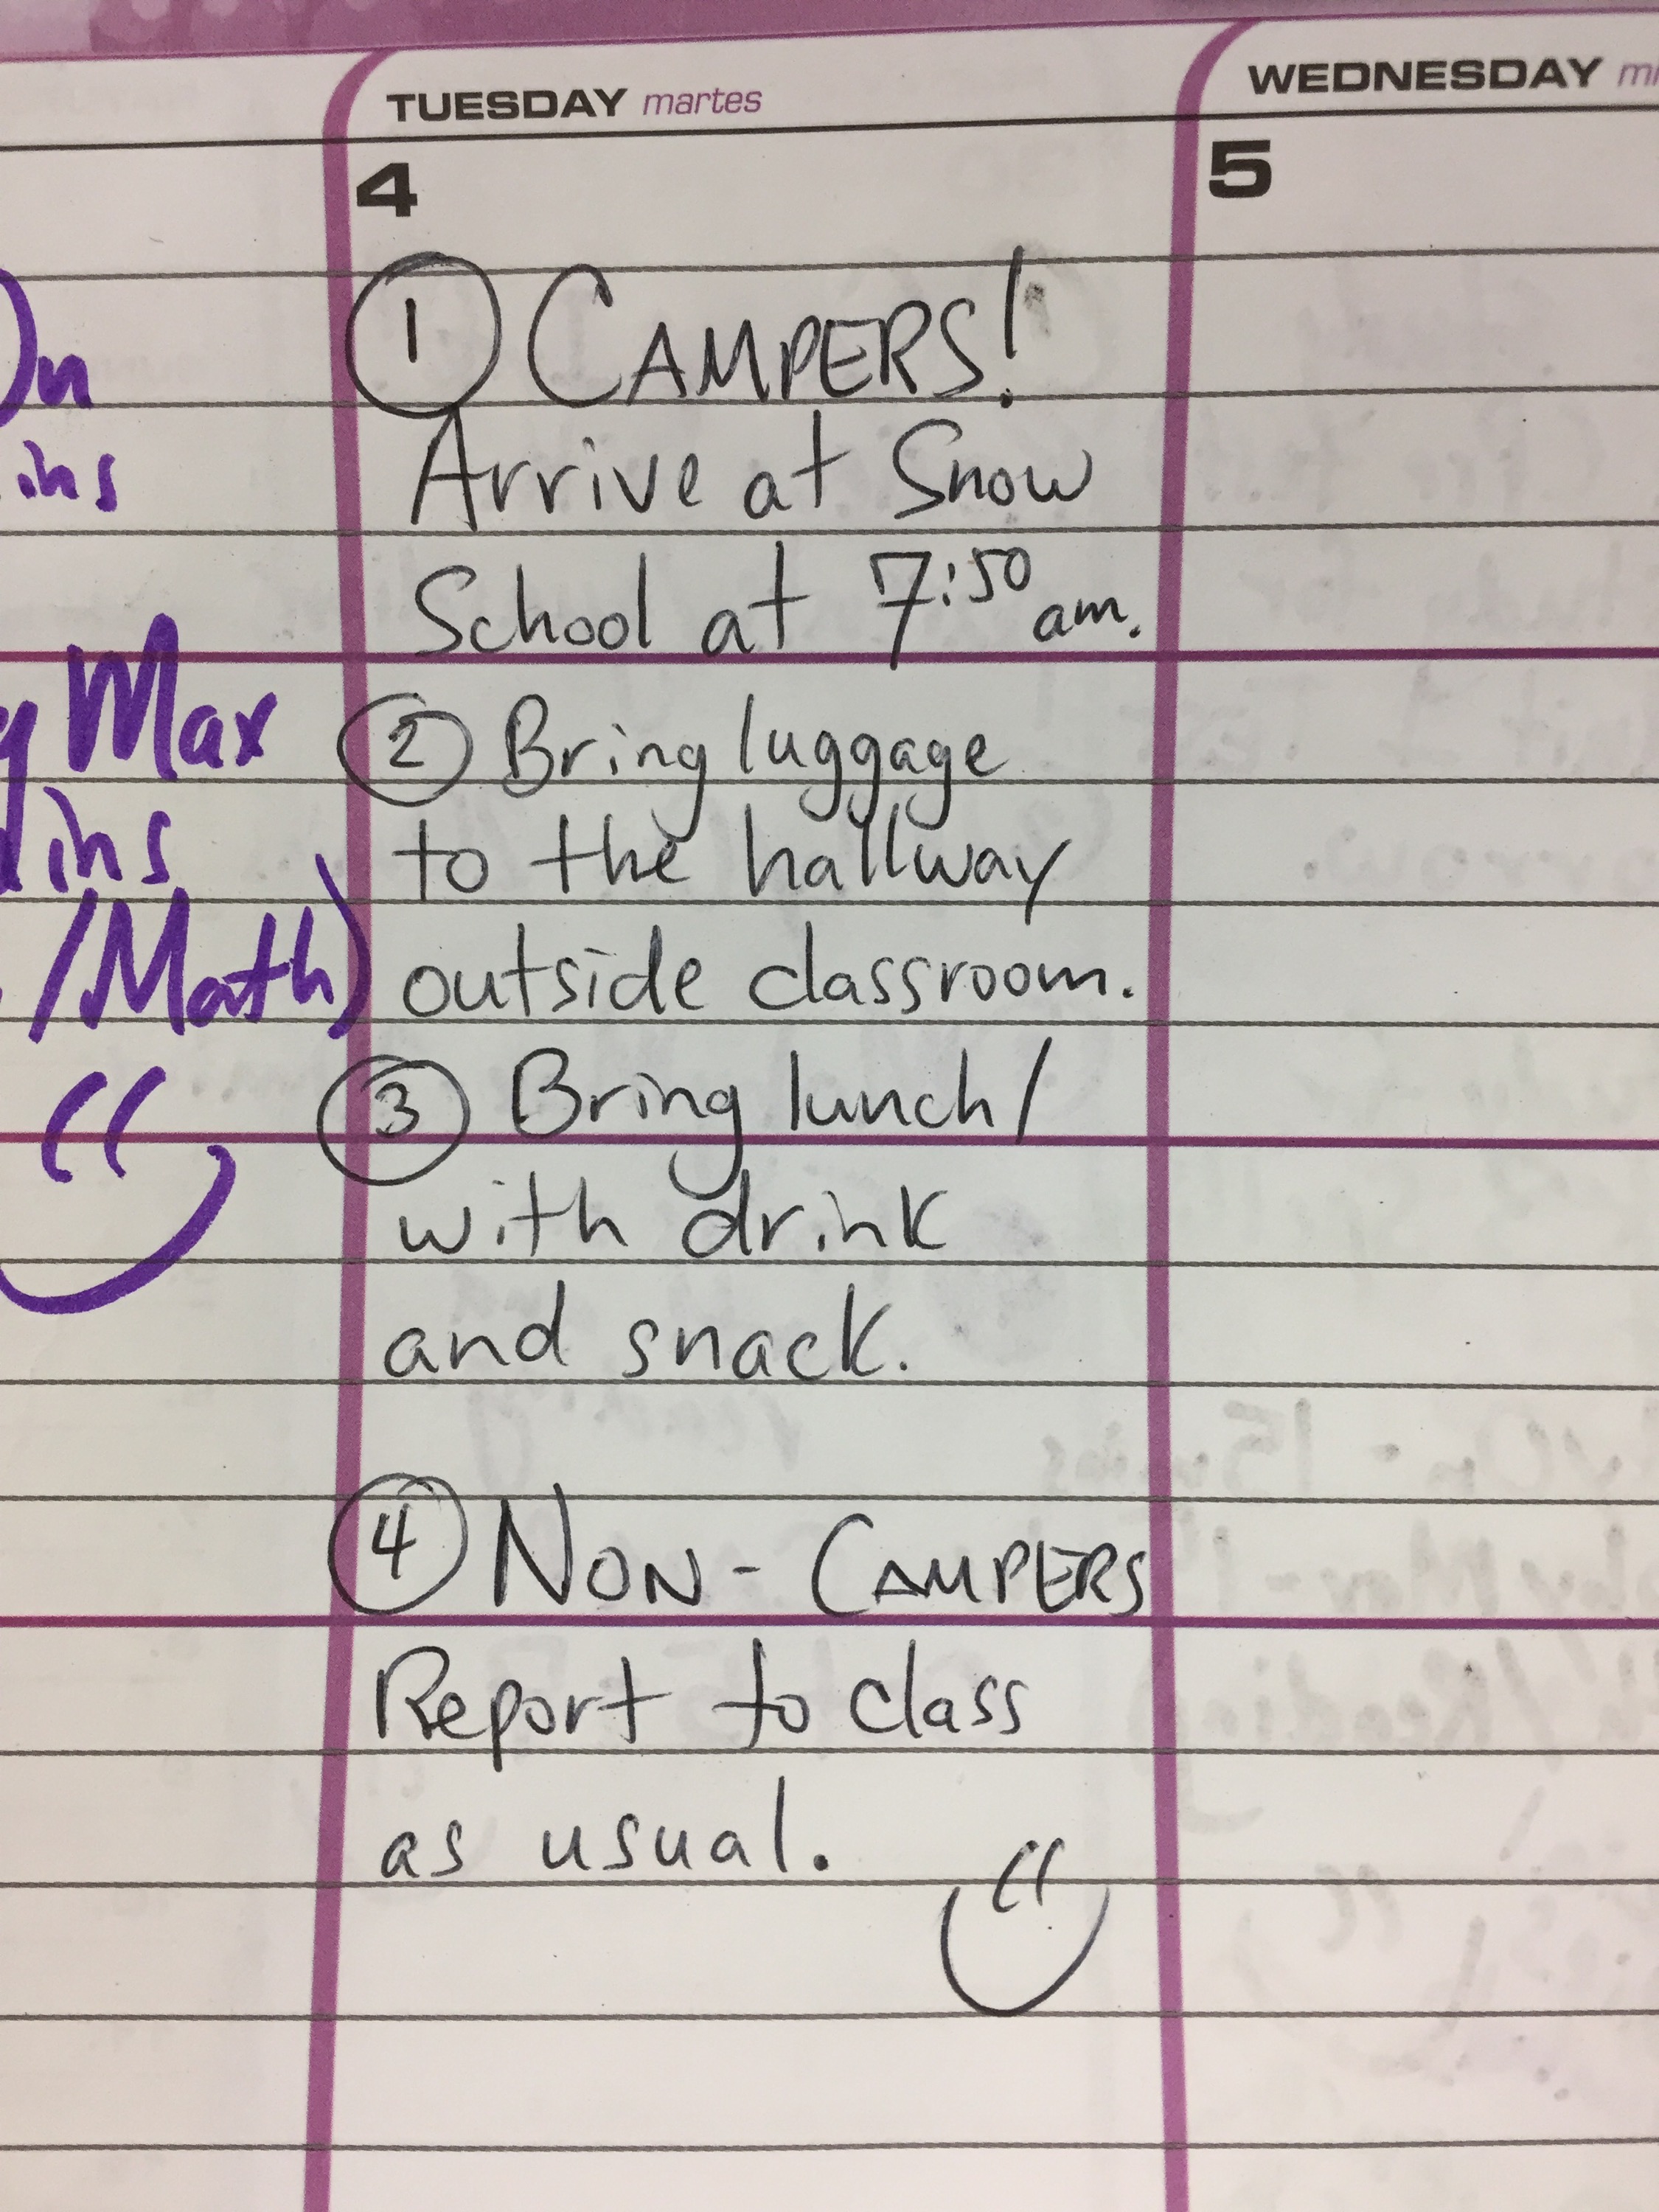 TUESDAY martes
WEDNESDAY
4
5
① CAMPERS!
Arrive at Snow
School at 7:50 am.
② Bring luggage
to the hallway
outside classroom.
③ Bring lunch/
with drink
and snack.
④ NON-CAMPERS
Report to class
as usual.
On
ins
Max
ins
/Math)